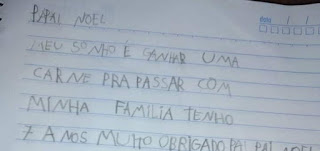 PAPAI NOEL
MEU SONHO É GANHAR UMA
CARNE PRA PASSAR COM
MINHA FAMILIA TENHO
7 ANOS MUITO OBRIGADO PAI PAI NOEL